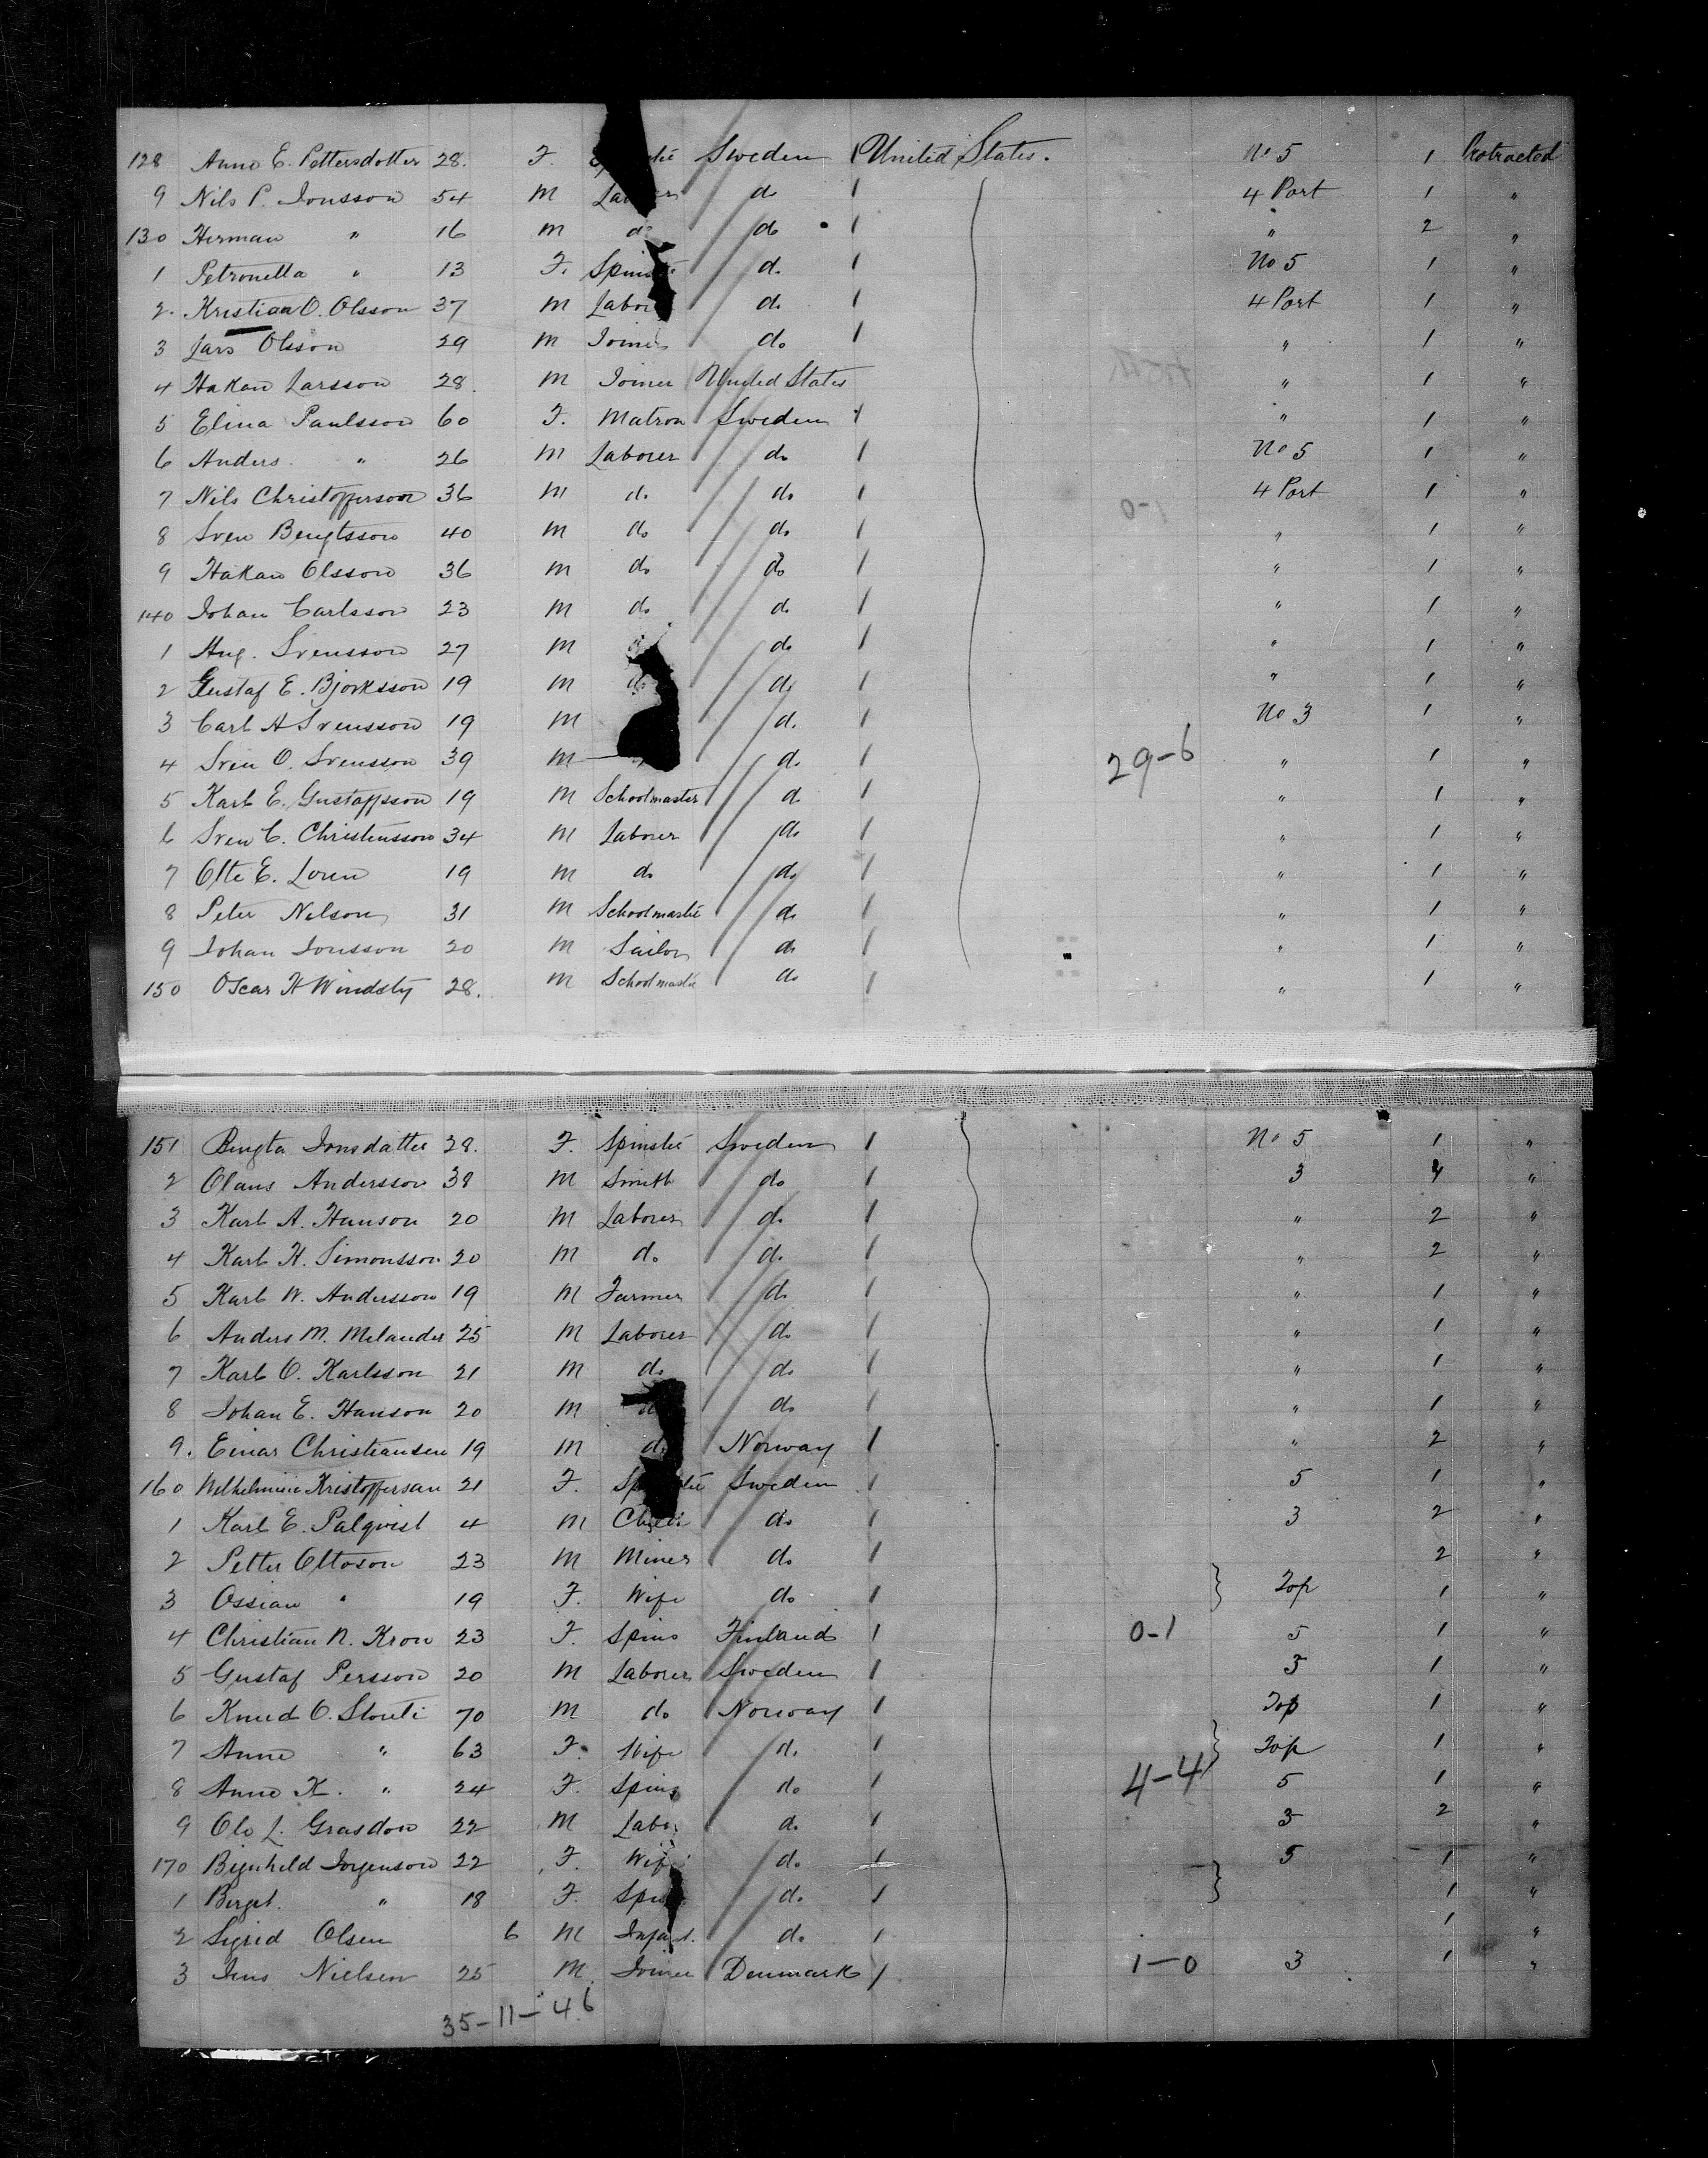 128 Anna E. Pettersdotter 28. F. Sweden United States. No 5 1 Protracted
9 Nils P. Jonsson 54 M Do 4 Port 1 "
130 Herman " 16 M do do " 2 "
1 Petronella " 13 F. do No 5 1 "
2. Kristian O. Olsson 37 M Labor do 4 Port 1 "
3 Lars Olsson 29 M Joiner do " 1 "
4 Hakan Larsson 28. M Joiner United States " 1 "
5 Elina Paulsson 60 F. Matron Sweden " 1 "
6 Anders " 26 M Laborer do No 5 1 "
7 Nils Christofferson 36 M do do 4 Port 1 "
8 Sven Bengtsson 40 M do do " 1 "
9 Hakan Olsson 36 M do do " 1 "
140 Johan Carlsson 23 M do do " 1 "
1 Aug. Svensson 27 M do " 1 "
2 Gustaf E. Bjorksson 19 M do do " 1 "
3 Carl A Svensson 19 M do No 3 1 "
4 Sven O. Svensson 39 M do 29-6 " 1 "
5 Karl E. Gustafsson 19 M Schoolmaster do " 1 "
6 Sven C. Christensson 34 M Laborer do " 1 "
7 Otte E. Loren 19 M do do " 1 "
8 Peter Nelson 31 M Schoolmaster do " 1 "
9 Johan Jonsson 20 M Sailor do " 1 "
150 Oscar H 28. M Schoolmaster do " 1 "
151 Bengta Jonsdatter 28. F. Spinster Sweden No 5 1 "
2 Olaus Andersson 38 M Smith do 3 4 "
3 Karl A. Hanson 20 M Laborer do " 2 "
4 Karl H. Simonsson 20 M do do " 2 "
5 Karl W. Andersson 19 M Farmer do " 1 "
6 Anders M. Melander 25 M Laborer do " 1 "
7 Karl O. Karlsson 21 M do do " 1 "
8 Johan E. Hanson 20 M do do " 1 "
9. Einar Christiansen 19 M do Norway " 2 "
160 Wilhelmina Kristofferson 21 F. Sweden 5 1 "
1 Karl E. Palqvist 4 M Child do 3 2 "
2 Petter Ottoson 23 M Miner do 2 "
3 Ossian " 19 F. Wife do Top 1 "
4 Christian N. Kron 23 F. Spins Finland 0-1 5 1 "
5 Gustaf Persson 20 M Laborer Sweden 3 1 "
6 Knud O. 70 M do Norway Top 1 "
7 Anne " 63 F. Wife do Top 1 "
8 Anne K. " 24 F. Spins do 4-4 5 1 "
9 Ole L. Grasdon 22 M Labor do 3 2 "
170 Jorgenson 22 F. Wife do 5 1 "
1 Berget " 18 F. Spins do 1 "
2 Sigrid Olsen 6 M Infant. do 1 "
3 Jens Nielsen 25 M. Joiner Denmark 1-0 3 1 "
35-11-46